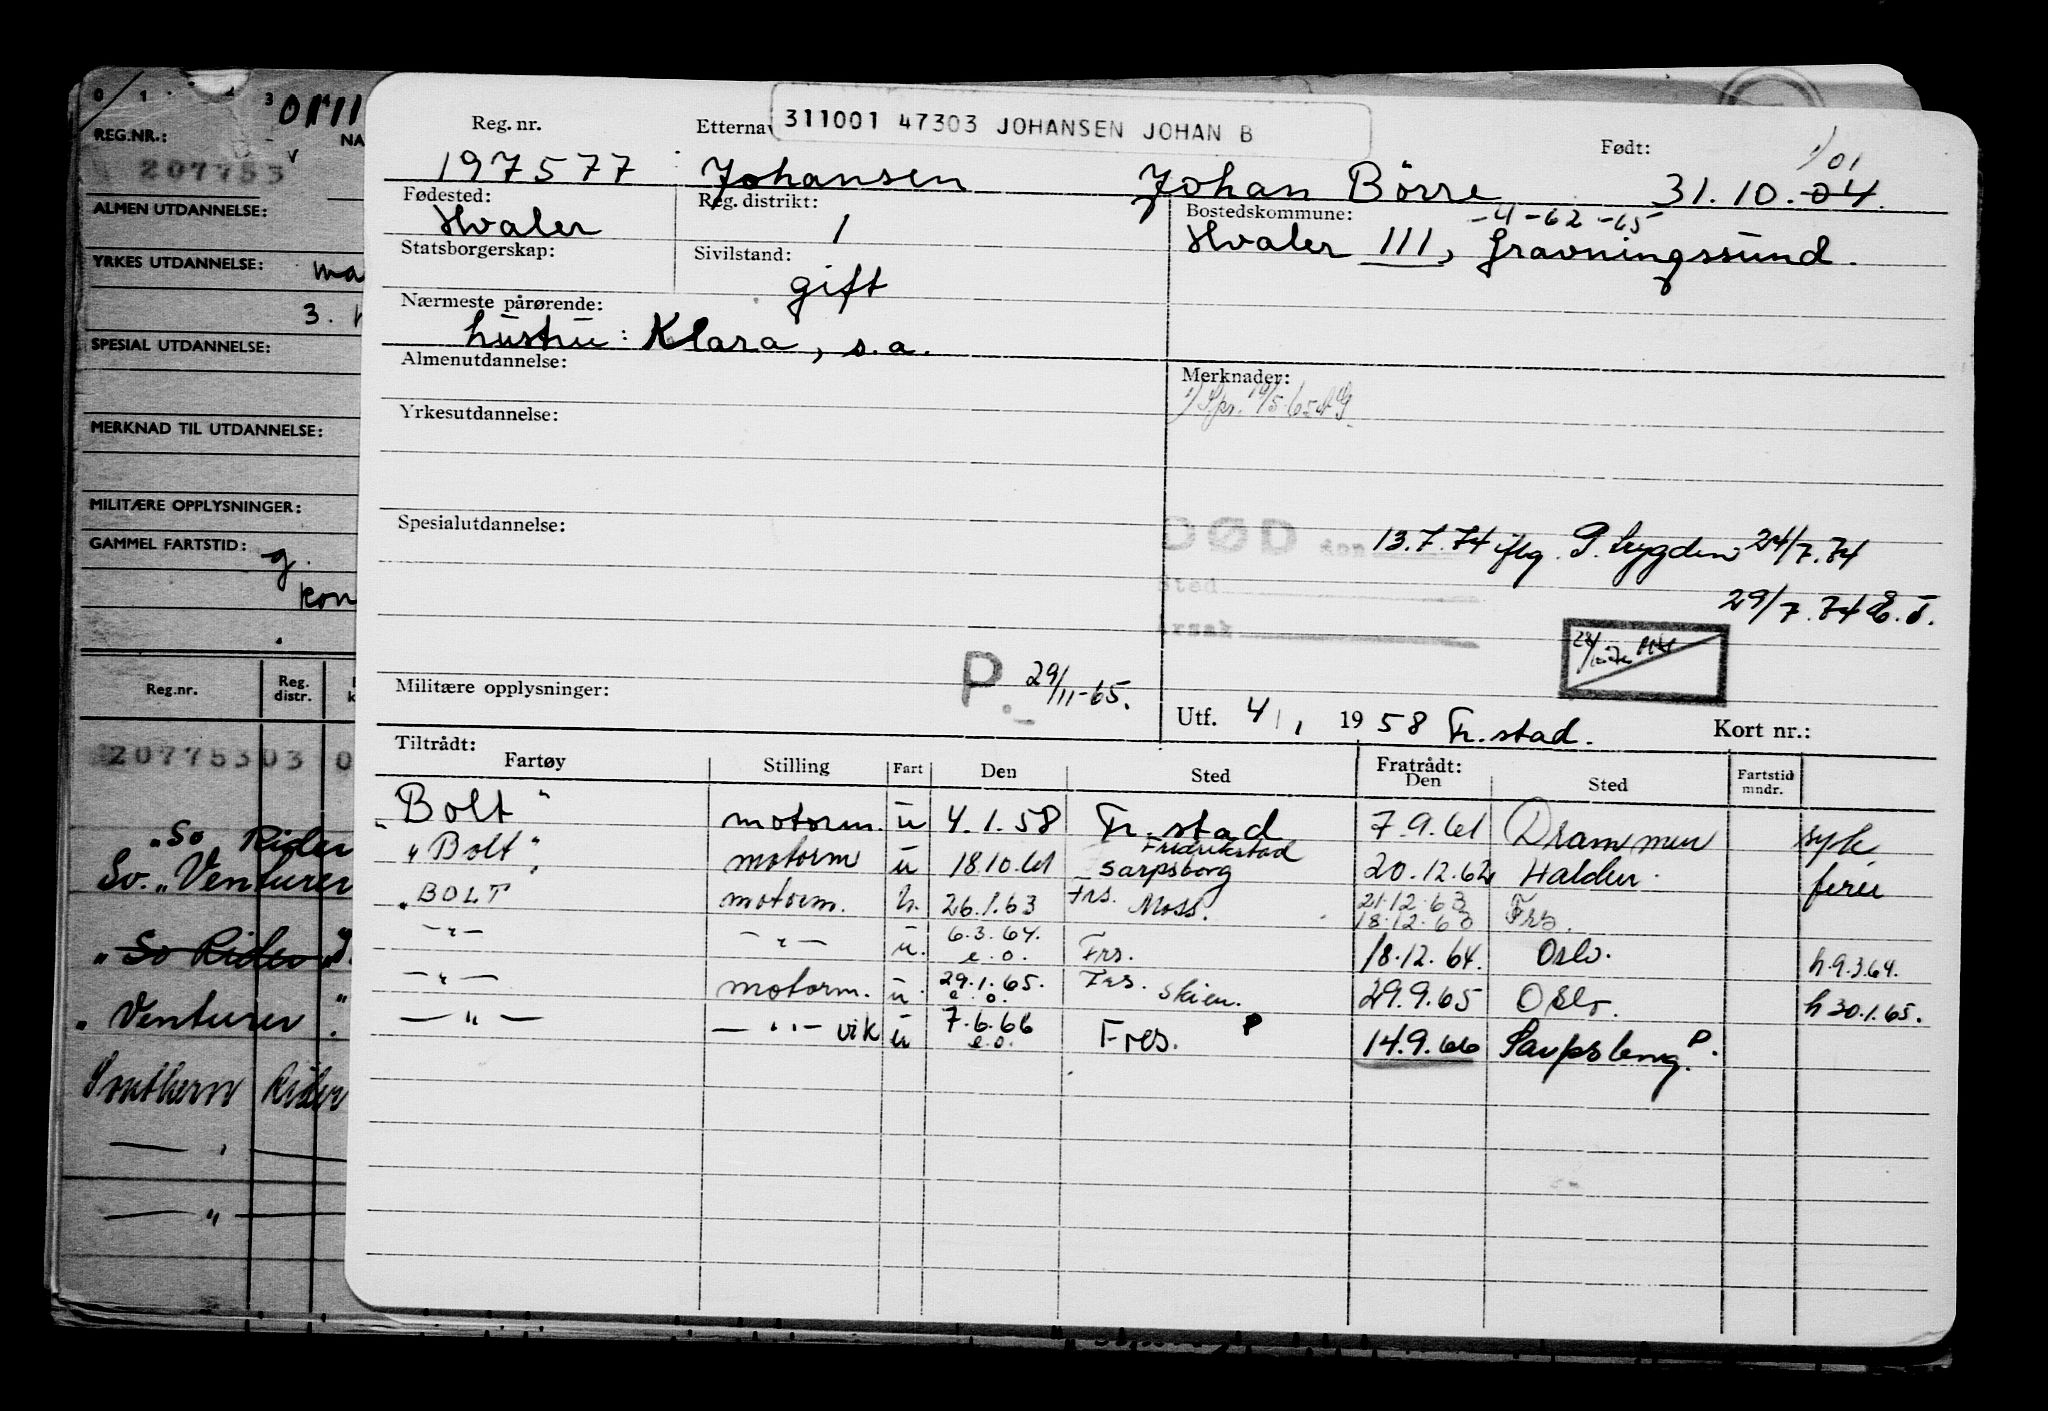 311001 47303 JOHANSEN JOHAN B
Reg. nr. Etternav Født:
1) 01
197577 Johansen Johan Börre 31.10.04.
Fødested: Reg. distrikt: Bostedskommune:
-4-62-65
Hvaler 1 Hvaler III, Gravningssund.
Statsborgerskap: Sivilstand:
gift
Nærmeste pårørende:
hustru: Klara, s.a.
Almenutdannelse: Merknader:
Yrkesutdannelse:
Spesialutdannelse:
DØD den 13.7.74 iflg. P. trygden 24/7.74
Sted
Årsak
29/7.74
P. 29/11-65.
Militære opplysninger:
Utf. 4/1 1958 Fr.stad. Kort nr.:
Tiltrådt: Fratrådt:
Fartøy Stilling Fart Den Sted Den Sted Fartstid mndr.
"Bolt" motorm. u 4.1.58 Fr.stad 7.9.61 Drammen syk
"Bolt" motorm u 18.10.61 Fredrikstad Sarpsborg 20.12.62 Halden. ferie
"BOLT motorm. h. 26.1.63 Frs. Moss. 21.12.63 18.12.63 Frs.
-"- -"- u. 6.3.64. e.o. Frs. 18.12.64. Oslo. h.9.3.64.
-"- motorm. u. 29.1.65. e.o. Frs. Skien. 29.9.65 Oslo. h 30.1.65.
-"- -"- vik u 7.6.66 e.o. Fres. P 14.9.66 Sarpsborg. P.
0 1 3
REG.NR.: NA
207753
ALMEN UTDANNELSE:
YRKES UTDANNELSE: ma
3.
SPESIAL UTDANNELSE:
MERKNAD TIL UTDANNELSE:
MILITÆRE OPPLYSNINGER:
GAMMEL FARTSTID: g.
kon
Reg.nr. Reg. distr.
20775303 0
"So Rider
So. "Venturer
"So Rider"
"Venturer"
Southern Rider
-"-
-"-